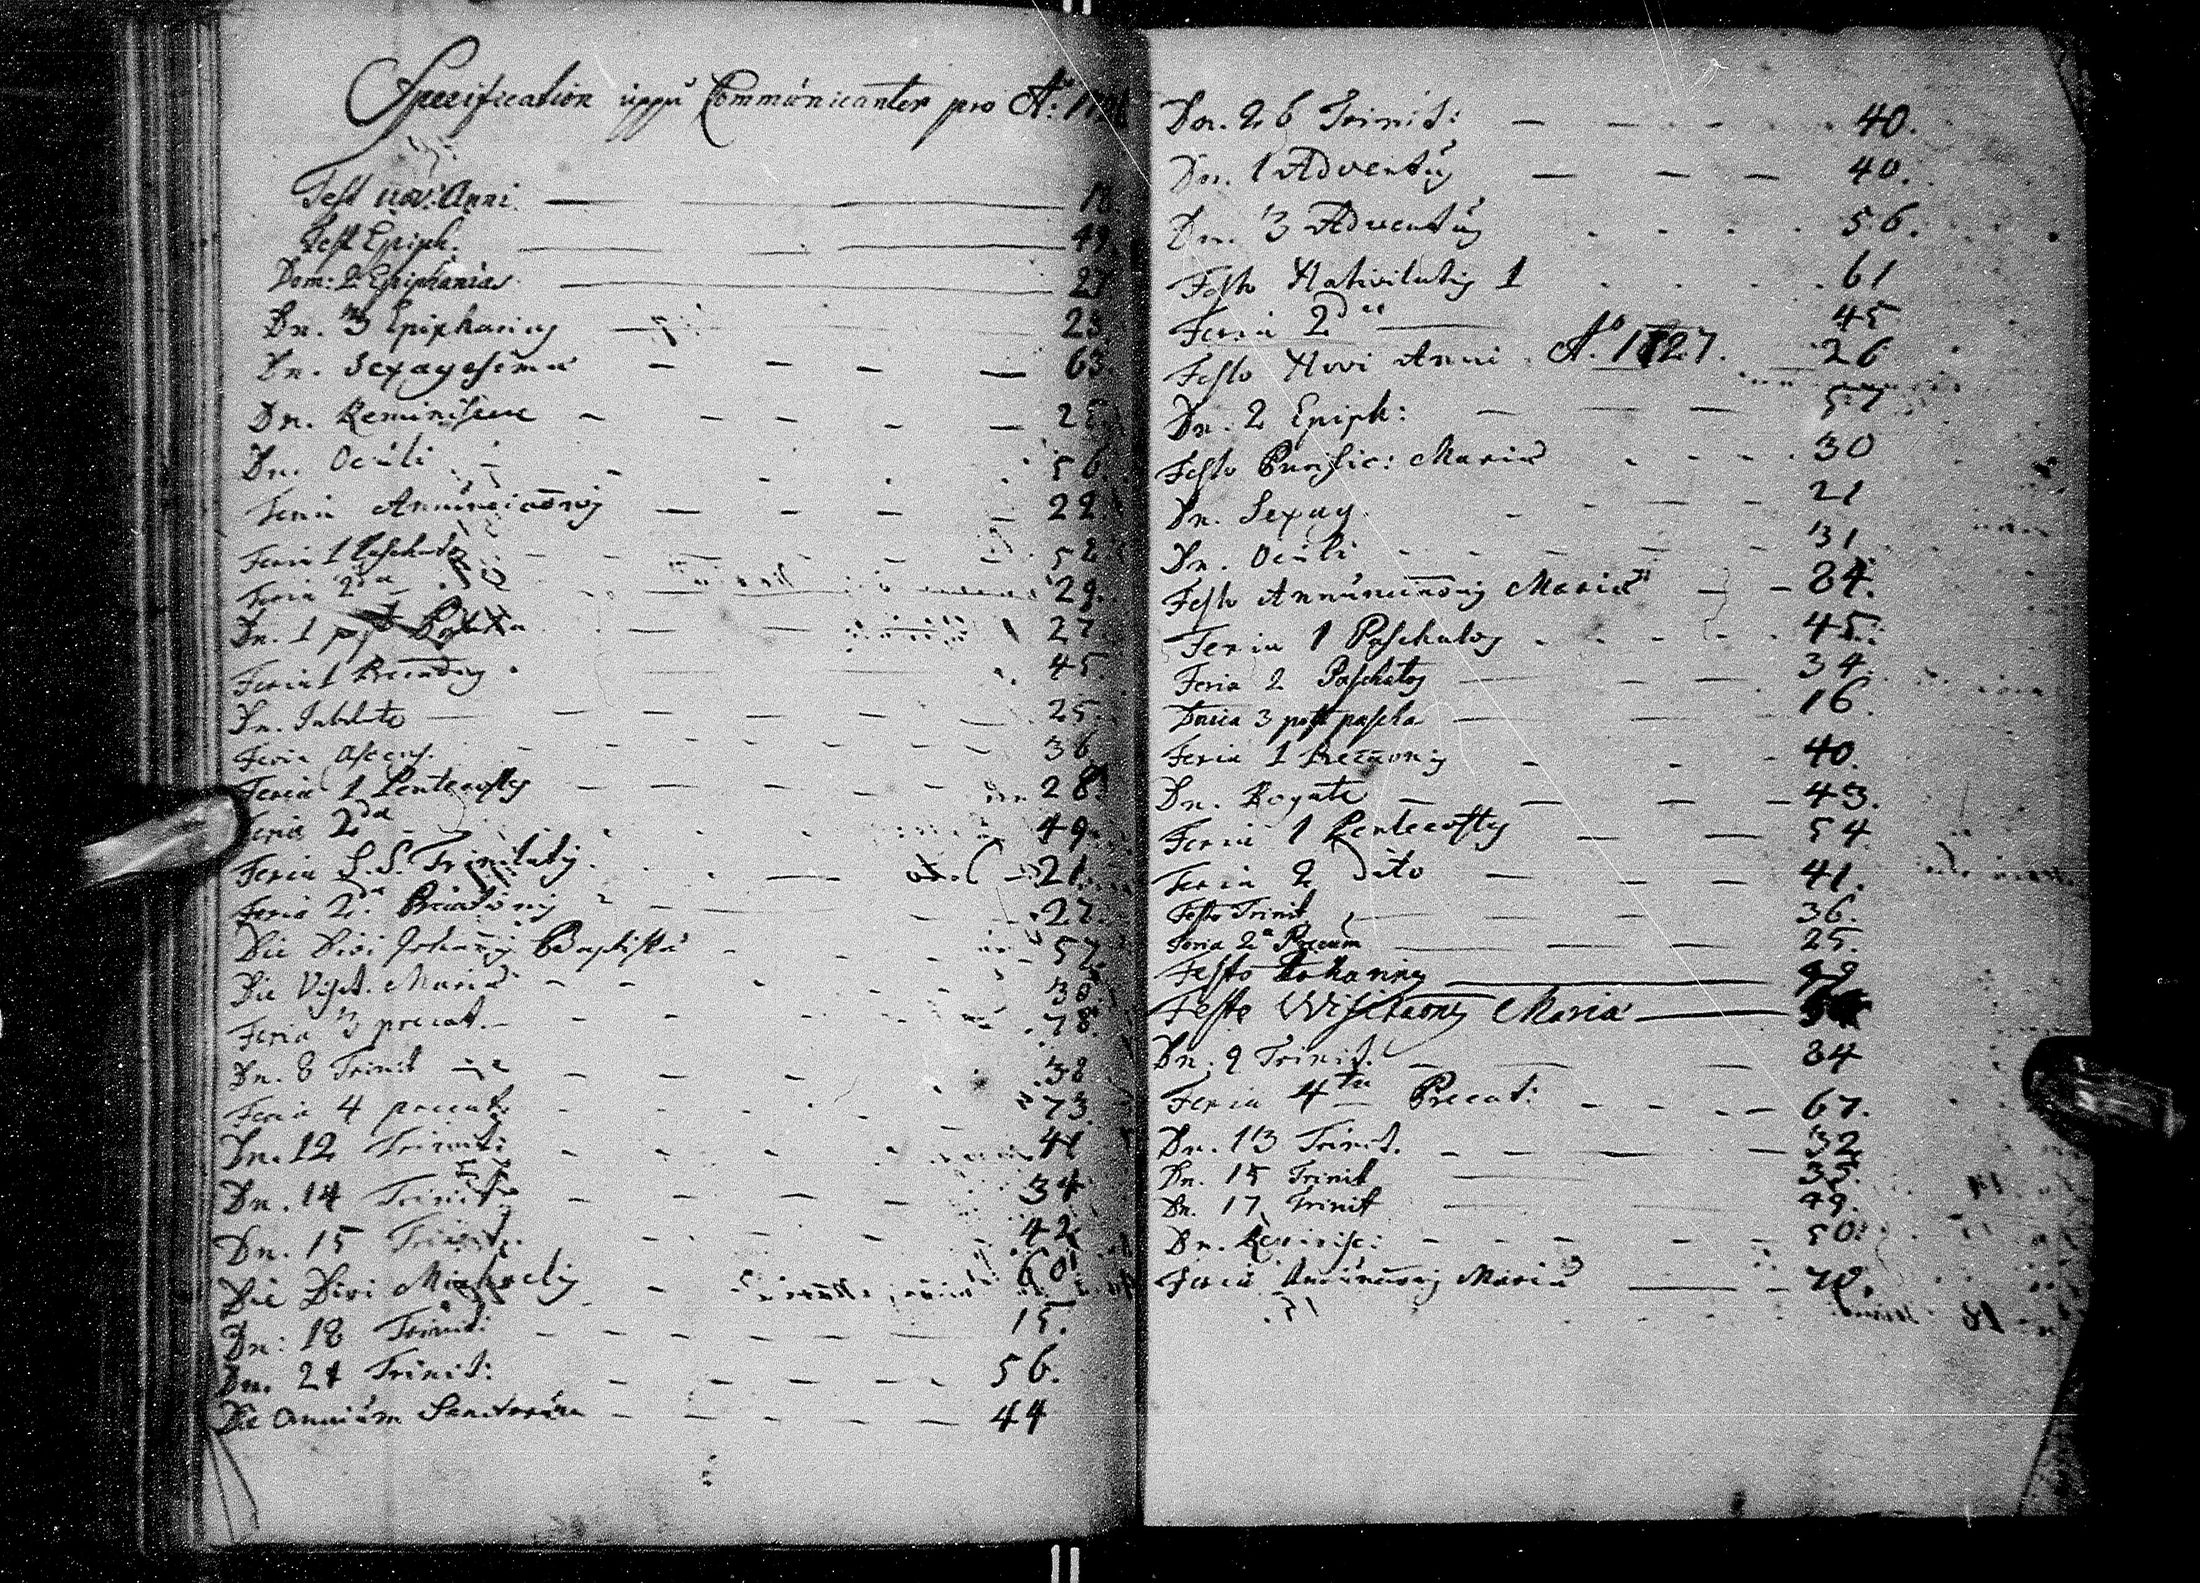 Specification uppå Communicanter pro A:o 172
Fest nov: Anni 18.
Fest Epiph. 49.
Dom: 2 Epiphanias 27
Dn. 3 Epiphanius 23.
Dn. Sexagesimæ 63.
Dn. Reminiscere 25.
Dn. Oculi 56.
Feria Annunciaonis 22.
Feria 1 Paschatos 52
Feria 2da 29.
Dn. 1 post Pascha 27
Feria 1 Precaonis 45.
Dn. Jubilate 25.
Feria Ascens. 36
Feria 1 Pentecostes 28.
Feria 2da 49.
Feria S.S. Trinitatis 21.
Feria 2da Precationis 27.
Die Divi Johannis Baptistæ 57.
Die Visit. Mariæ 30
Feria 3 precat. 78.
Dn. 8 Trinit 38
Feria 4 precat. 73.
Dn. 12 Trinit: 41
Dn. 14 Trinit. 34
Dn. 15 Trinit. 42.
Die Divi Michaelis 60
Dn: 18 Trinit: 15.
Dn. 21 Trinit: 56.
Die omnium Sanctorum 44
Dn. 26 Trinit: 40.
Dn. 1 Adventus 40.
Dn. 3 Adventus 56.
Festo Nativitatis 1 61
Feria 2dae 45
Festo Novi Anni A:o 1727. 26
Dn. 2 Epiph: 57
Festo Purific: Mariæ 30
Dn. Sexag. 21
Dn. Oculi 31.
Festo Annunciaonis Mariæ 84.
Feria 1 Paschatos 45.
Feria 2 Paschatos 34.
Dnica 3 post pascha 16
Feria 1 Precaonis 40.
Dn. Rogate 43.
Feria 1 Pentecostes 54
Feria 2 dito 41.
Festo Trinit. 36.
Feria 2a Precum 25.
Festo Johannis 49
Festo Visitaonis Mariæ
Dn. 9 Trinit. 84
Feria 4ta Precat: 67.
Dn. 13 Trinit. 32
Dn. 15 Trinit 35.
Dn. 17 Trinit 49.
Dn. Reminisc: 50.
Feria Anunciaonis Mariæ 70.